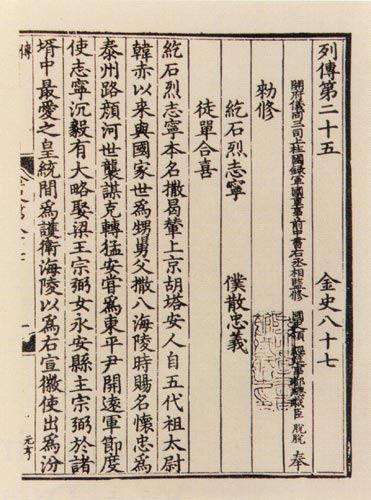 列傳第二十五 金史八十七
開府儀同三司上柱國錄軍國重事前中書右丞相監修 國史領 經筵事都總裁臣 脫脫 奉
勑修
紇石烈志寧 僕散忠義
徒單合喜
紇石烈志寧本名撒曷輦上京胡塔安人自五代祖太尉
韓赤以來與國家世爲甥舅父撒八海陵時賜名懷忠爲
泰州路顏河世襲謀克轉猛安甞爲東平尹開遠軍節度
使志寧沉毅有大略娶梁王宗弼女永安縣主宗弼於諸
壻中最愛之皇統間爲護衛海陵以爲右宣徽使出爲汾